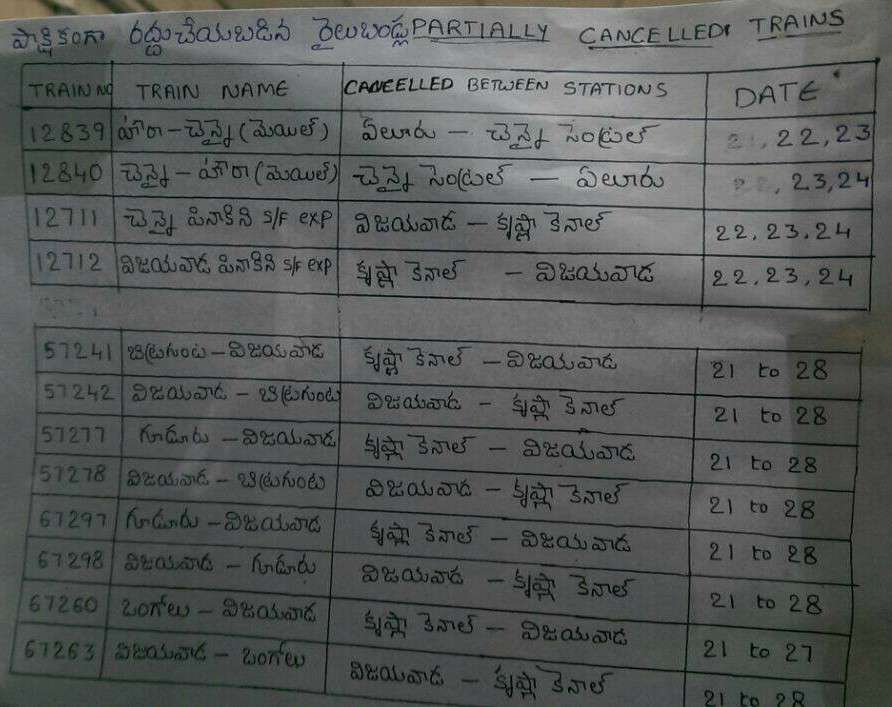 పాక్షికంగా రద్దుచేయబడిన రైలుబండ్లు PARTIALLY CANCELLED TRAINS
TRAIN NO TRAIN NAME CANCELLED BETWEEN STATIONS DATE
12839 హౌరా - చెన్నై (మెయిల్) ఏలూరు - చెన్నై సెంట్రల్ 21, 22, 23
12840 చెన్నై - హౌరా (మెయిల్) చెన్నై సెంట్రల్ - ఏలూరు , 23, 24
12711 చెన్నై పినాకిని S/F exp విజయవాడ - కృష్ణా కెనాల్ 22, 23, 24
12712 విజయవాడ పినాకిని S/F exp కృష్ణా కెనాల్ - విజయవాడ 22, 23, 24
57241 బిట్రగుంట - విజయవాడ కృష్ణా కెనాల్ - విజయవాడ 21 to 28
57242 విజయవాడ - బిట్రగుంట విజయవాడ - కృష్ణా కెనాల్ 21 to 28
57277 గూడూరు - విజయవాడ కృష్ణా కెనాల్ - విజయవాడ 21 to 28
57278 విజయవాడ - బిట్రగుంట విజయవాడ - కృష్ణా కెనాల్ 21 to 28
67297 గూడూరు - విజయవాడ కృష్ణా కెనాల్ - విజయవాడ 21 to 28
67298 విజయవాడ - గూడూరు విజయవాడ - కృష్ణా కెనాల్ 21 to 28
67260 ఒంగోలు - విజయవాడ కృష్ణా కెనాల్ - విజయవాడ 21 to 27
67263 విజయవాడ - ఒంగోలు విజయవాడ - కృష్ణా కెనాల్ 21 to 28